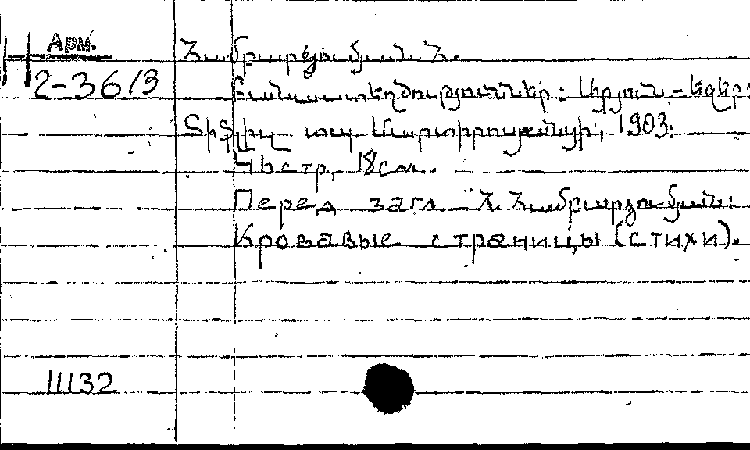 Арм.
2-3613
Համբարձումյան Հ.
Բանաստեղծություններ: Արյուն-եզեր:
Տիֆլիս տպ Մարտիրոսյանցի, 1903.
стр, 18см.
Перед загл Հ. Համբարձումյան:
Кровавые страницы (стихи).
11132